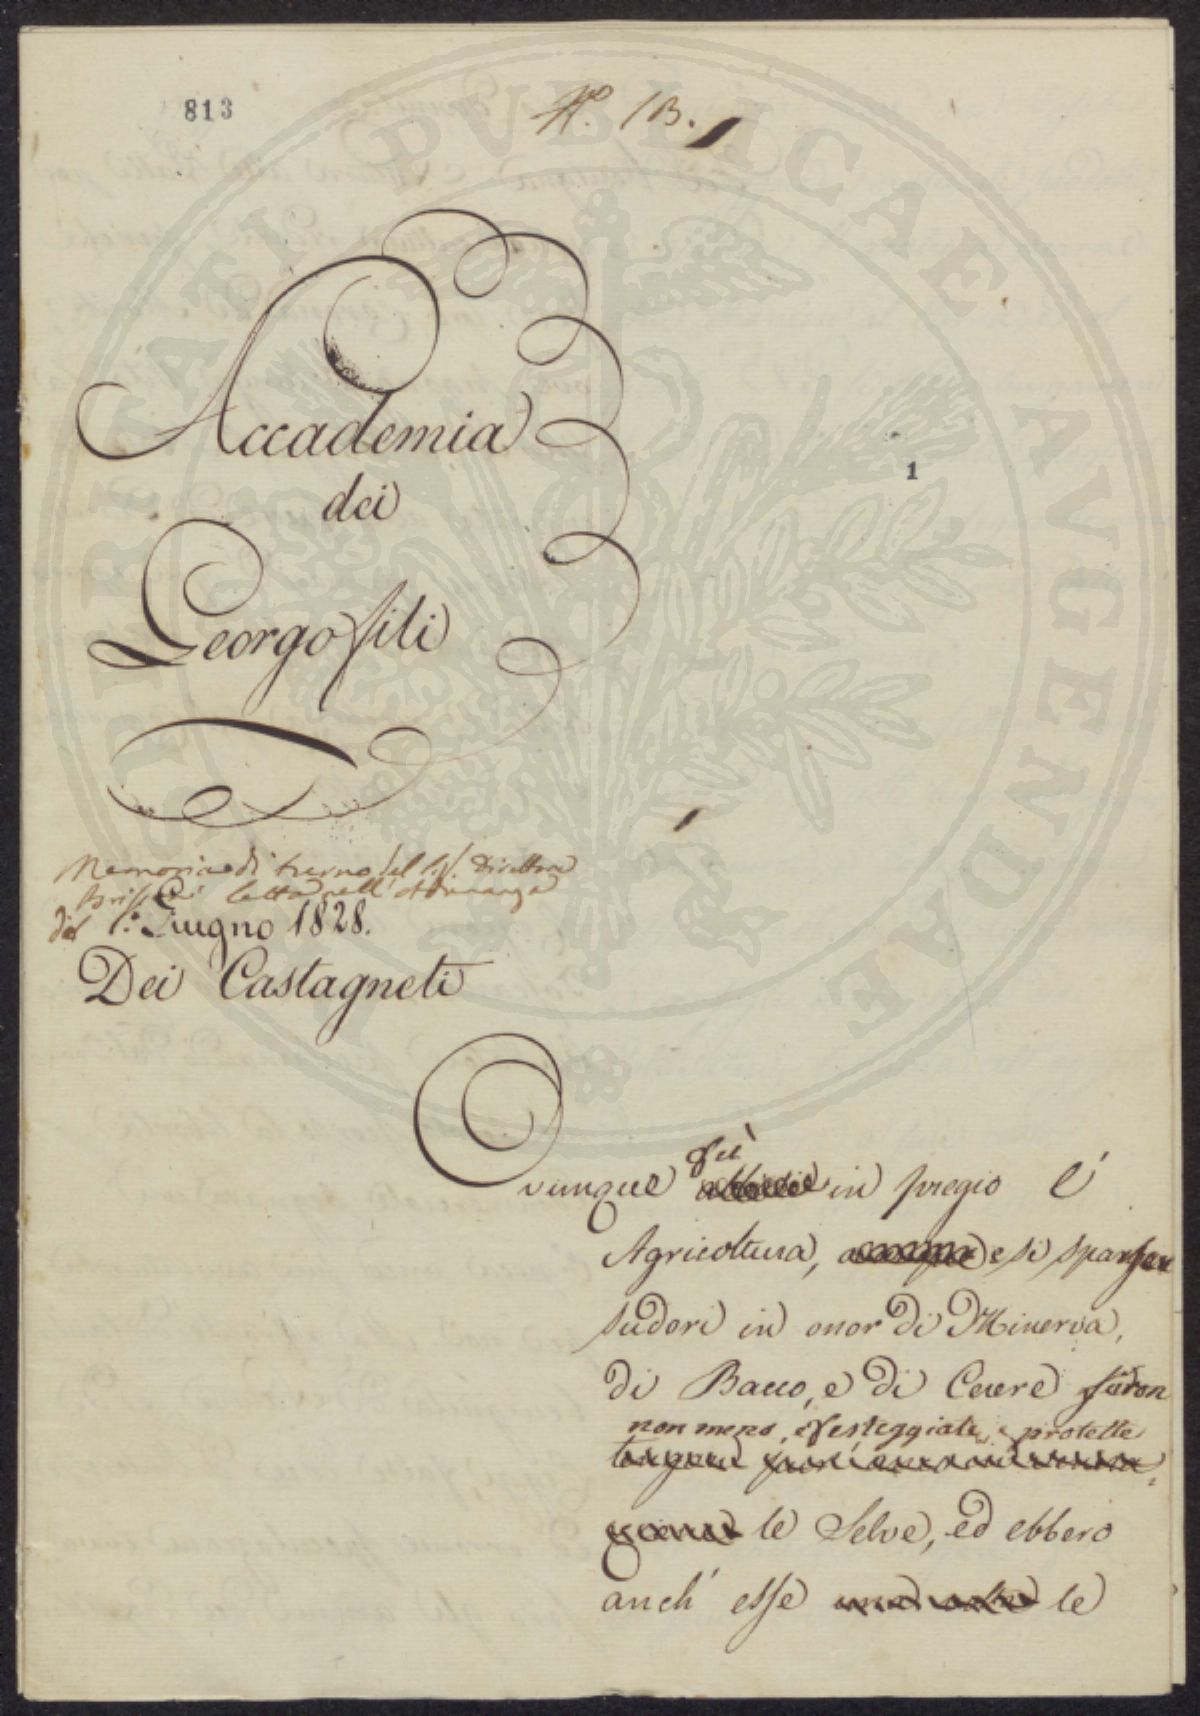 813
N.º 13.
Accademia
dei
Georgofili
1
Memoria di turno del Sig. Direttore
letta nell'Adunanza
del 1.º Giugno 1828.
Dei Castagneti
Ovunque fù in pregio l'
Agricoltura, e si sparser
sudori in onor di Minerva,
di Bacco, e di Cerere furon
non meno, festeggiate, e protette
le Selve, ed ebbero
anch' esse le
PUBLICAE AUGENDAE